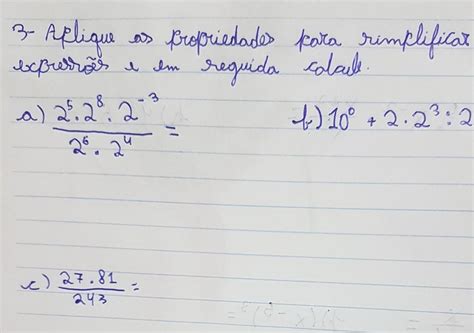 3- Aplique as propriedades para simplificar
expressões e em seguida calcule.
a) 2⁵ . 2⁸ . 2⁻³ / 2⁶ . 2⁴ =
b) 10⁰ + 2 . 2³ : 2
c) 27 . 81 / 243 =